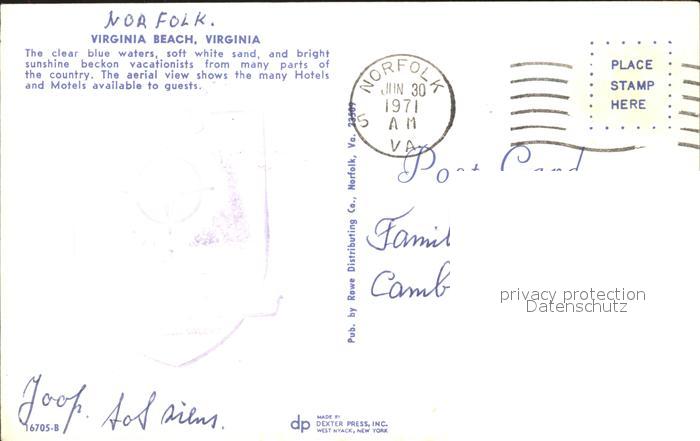 NORFOLK.
VIRGINIA BEACH, VIRGINIA
The clear blue waters, soft white sand, and bright
sunshine beckon vacationists from many parts of
the country. The aerial view shows the many Hotels
and Motels available to guests.
Joop.
16705-B
Pub. by Rowe Distributing Co., Norfolk, Va. 23509
MADE BY
dp DEXTER PRESS, INC.
WEST NYACK, NEW YORK
NORFOLK
JUN 30
1971
AM
5
VA
PLACE
STAMP
HERE
Post Card
Famil
Camb
privacy protection
Datenschutz